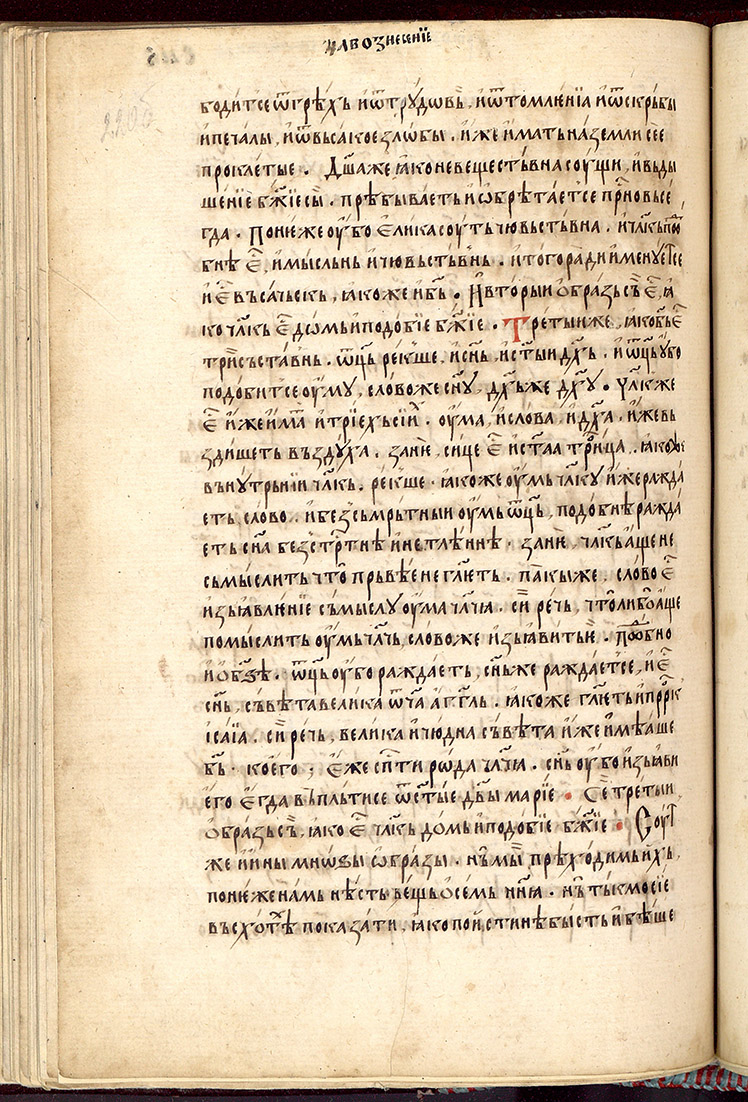 на вознесенїе
220б
бодитсе ѿ грѣхъ и ѿ трудовь, и ѿ томленїа и ѿ скрьбы
и печалы, и ѿ всакое злобы. иже имать на земли сее
проклетые. Дш҃а же ꙗко невеществьна соущи, и выды
шенїе бж҃їе сы. прѣбываеть и ѡбрѣтаетсе прⷭ҇но вьсе
гда. Понеже оубо Елика соуть чювьствна. и чл҃кь пⷣо
бнѣ еⷭ҇, и мысльнь и чювьствнь. и того ради именуетсе
и еⷭ҇ вьсачьскь, ꙗкоже и бь҃. И вторыи образь съ еⷭ҇, ꙗ
ко чл҃кь еⷭ҇ домь и подобїе бж҃їе. Третыи же, ꙗко бь҃ еⷭ҇
трисъставнь. ѿц҃ь рекше, и сн҃ь, и ст҃ыи дх҃ь. и ѿц҃ь убо
подобитсе оуму, слово же сн҃у, дх҃ь же дх҃у. Чл҃к же
еⷭ҇ иже имать и трїехь сїихь. оума, и слова, и дх҃а. иже вь
здишеть въздуха. зане, сице еⷭ҇ и ст҃аа трⷪ҇ица. ꙗко
вънутрьнїи чл҃кь. рекше. ꙗкоже оумь чл҃ку иже ражда
еть, слово. и безсьмрьтныи оумь ѿц҃ь, подобнѣ ражда
еть сн҃а безстрⷭ҇тнѣ и нетлѣннѣ. зане, чл҃кь аще не
сьмыслить что прьвѣе не гл҃еть. пакы же, слово еⷭ҇
изьꙗвленїе съмыслу оума чл҃ча. сирⷱ҇ речь, что либо аще
помыслить оумь чл҃чь, слово же изьꙗвить е. пⷣобно
и о бѕ҃ѣ. ѿц҃ь оубо раждаеть, сн҃ь же раждаетсе, и еⷭ҇
сн҃ь, съвѣта велика ѿч҃а агг҃ль. ꙗкоже гл҃еть и прⷪ҇рк
ісаїа. си речь, велика и чюдна съвѣта иже имѣаше
бь҃. коего; еже сп҃сти рѡда чл҃ча. сн҃ь оубо изьꙗви
его егда вьплътисе ѿ ст҃ые дв҃ы марїе. Се третыи
образь съ, ꙗко еⷭ҇ чл҃кь домь и подобїе бж҃їе. Соут
же и ины мнѡзы ѡбразы. нь мы прѣходимь ихь,
понеже намь нѣсть вещь о семь нн҃ꙗ. нь тькмо сїе
въсхотѣ показати, ꙗко по истинѣ бысть и бѣше